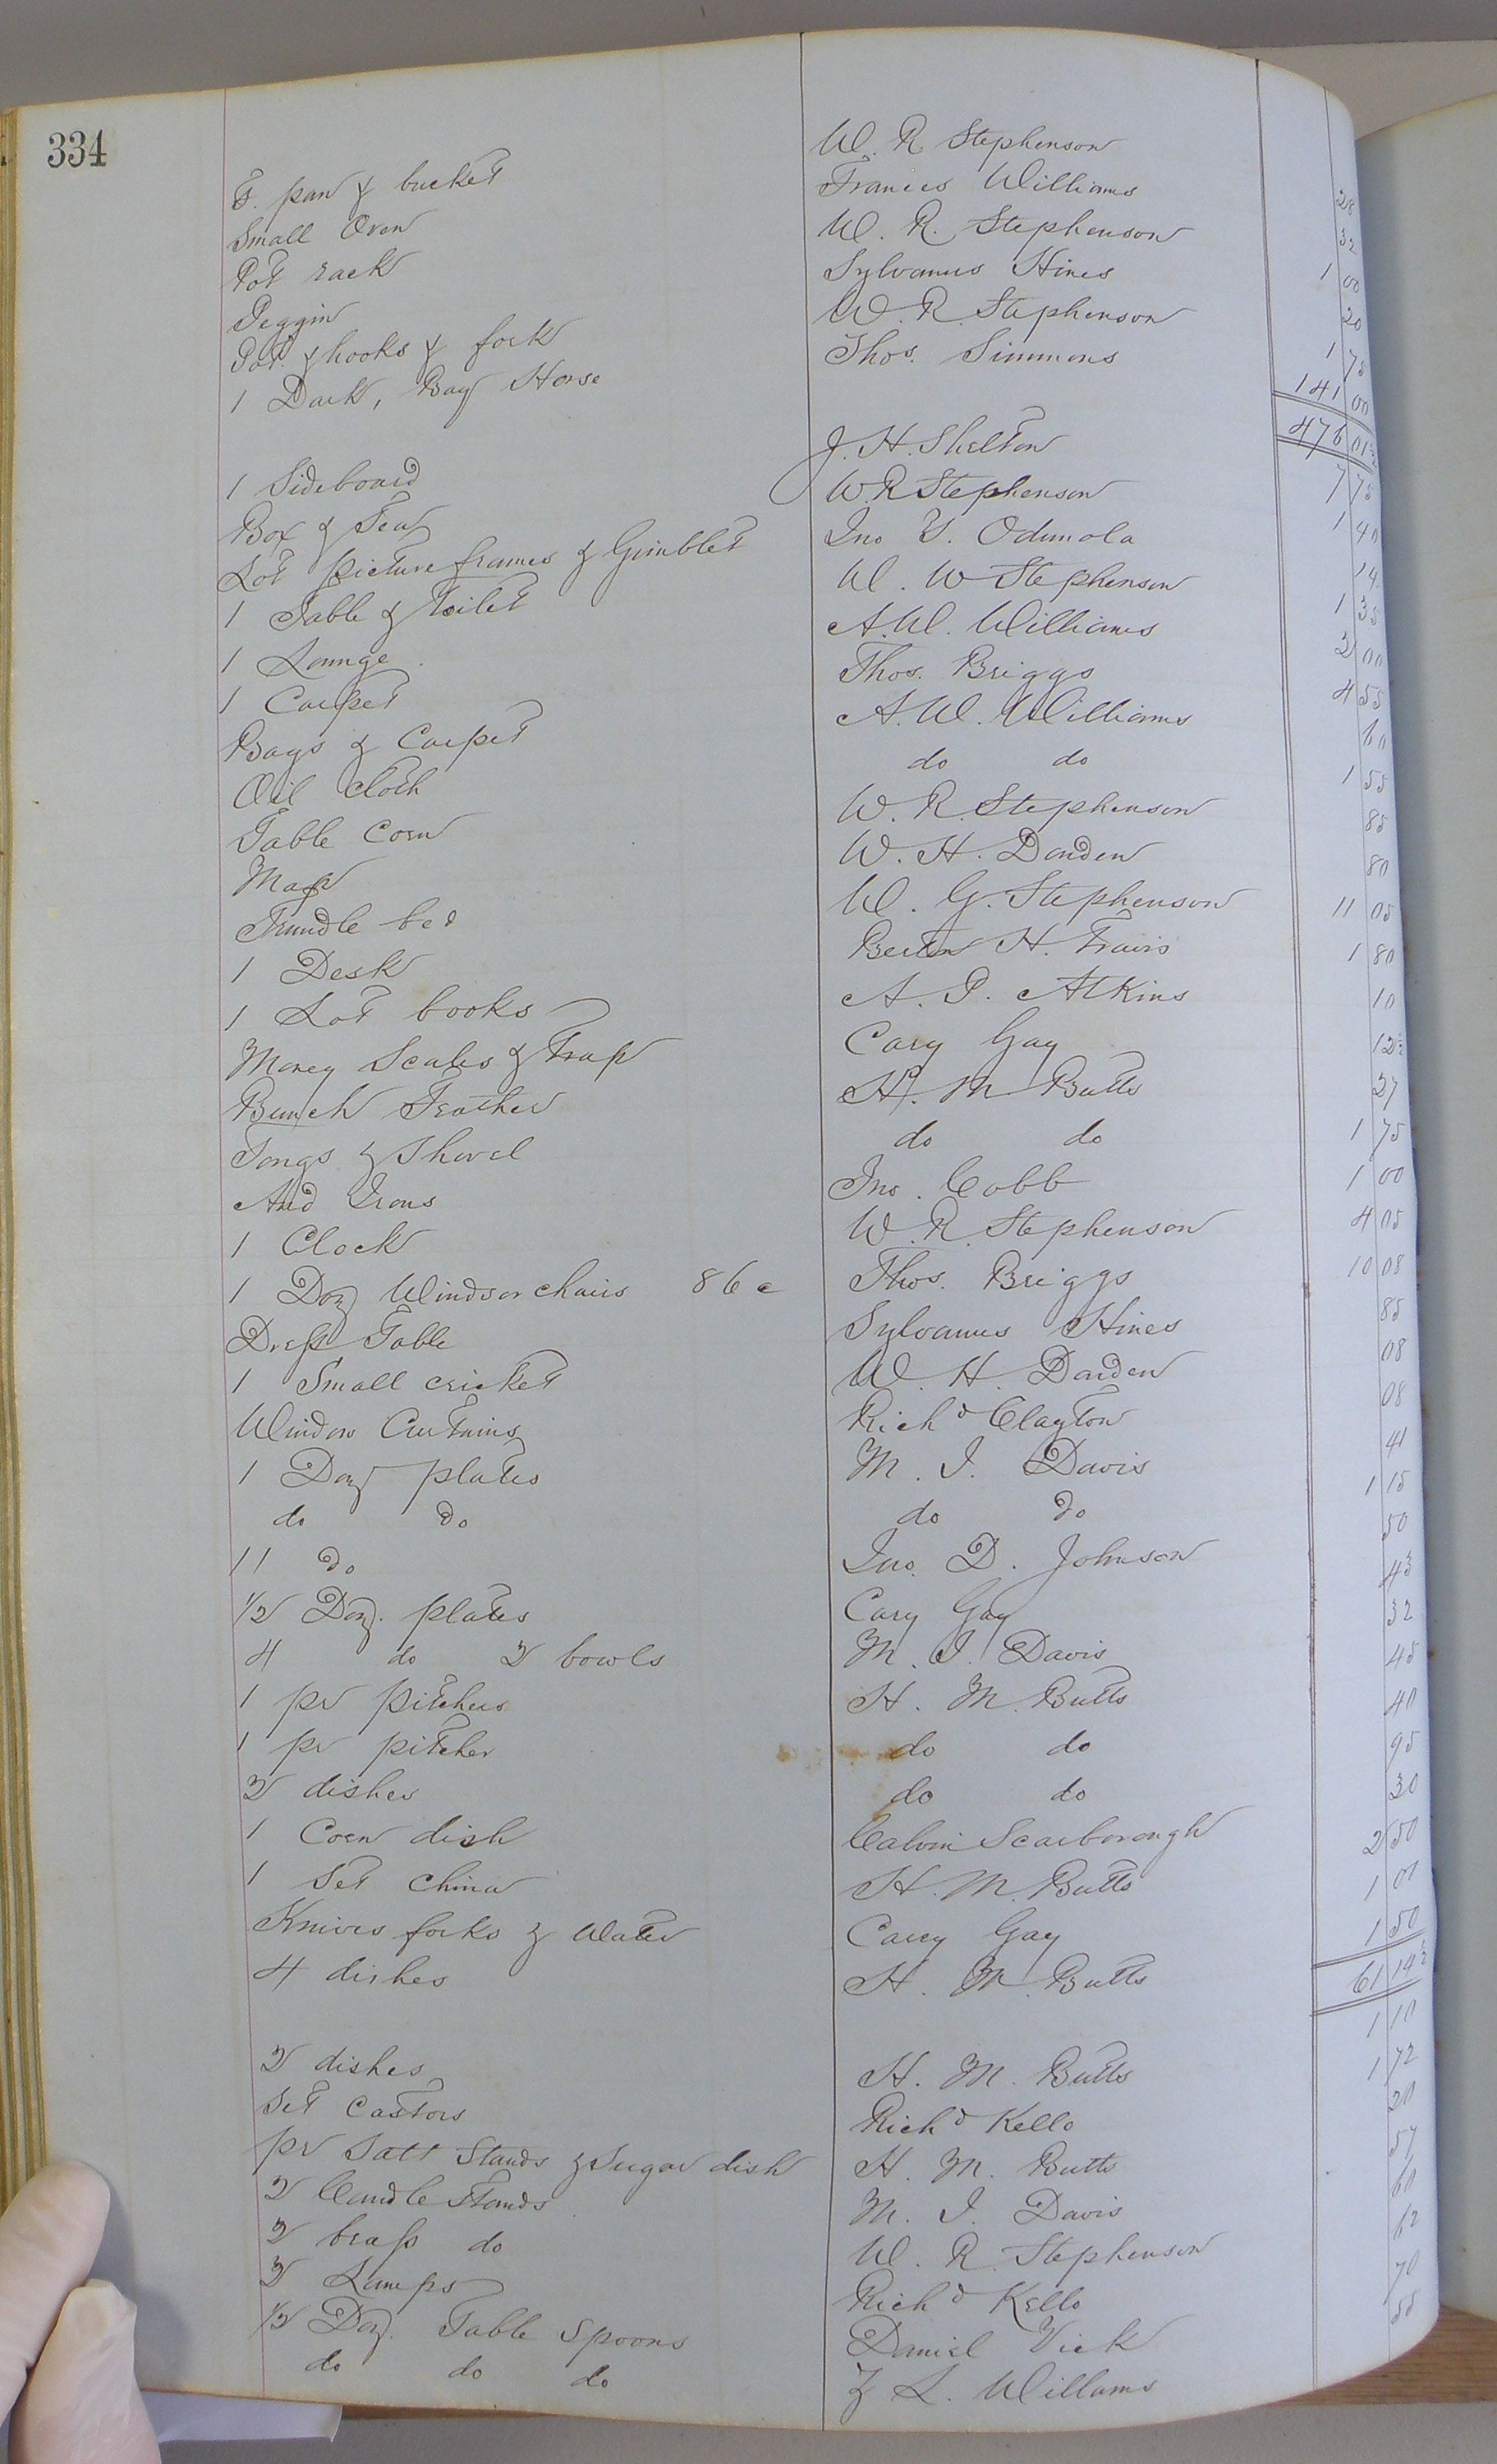 334
F. pan & bucket W. R. Stephenson 28
Small Oven Frances Williams 32
Pot rack W. R. Stephenson 1 00
Peggin Sylvanus Hines 20
Pot & hooks & fork W. R. Stephenson 1 75
1 Dark, Bay Horse Thos. Simmons 141 00
476 01½
1 Sideboard J. H. Shelton 7 75
Box & Tea W R Stephenson 1 40
Lot picture frames & Gimblet Jno Y. Odunola 14
1 Table & Toilet W. W Stephenson 1 35
1 Lounge A. W. Williams 2 00
1 Carpet Thos. Briggs 4 55
Bags & Carpet A. W. Williams 60
Oil Cloth do do 1 55
Table Corn W. R. Stephenson 85
Map W. H. Darden 80
Trundle bed W. G. Stephenson 11 05
1 Desk H. Travis 1 80
1 Lot books A. P. Atkins 10
Money Scales & Trap Cary Gay 12½
Bunch Feather H. M Butts 27
Tongs & Shovel do do 1 75
And Irons Jno. Cobb 1 00
1 Clock W. R. Stephenson 4 05
1 Doz Windsor chairs 86 c Thos. Briggs 10 08
Dress Table Sylvanus Hines 85
1 Small cricket W. H. Darden 08
Window Curtains Richd Clayton 08
1 Doz plates M. J. Davis 41
do do do do 1 15
11 do Jno. D. Johnson 50
1/2 Doz. plates Cary Gay 43
4 do 2 bowls M. J. Davis 32
1 pr pitchers H. M. Butts 45
1 pr pitcher do do 40
2 dishes do do 95
1 Corn dish Calvin Scarborough 30
1 Set China H. M. Butts 2 50
Knives forks & Water Cary Gay 1 01
4 dishes H. M. Butts 1 50
61 14½
2 dishes H. M. Butts 1 10
Set Castors Richd Kello 1 72
pr Salt Stands & Sugar dish H. M. Butts 20
2 Candle Stands M. J. Davis 57
2 brass do W. R. Stephenson 60
2 Lamps Richd Kello 62
1/2 Doz. Table Spoons Daniel Vick 70
do do do Z L. Williams 55